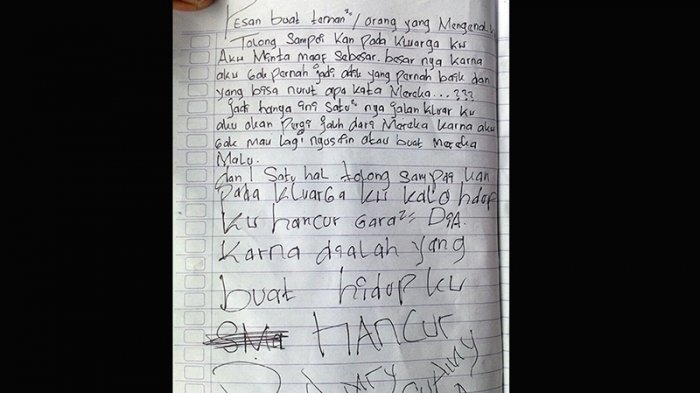 Pesan buat teman²/orang yang Mengenal
Tolong Sampai Kan Pada Kluarga ku
Aku Minta maaf Sebesar. besar nya Karna
aku Gak Pernah jadi adik yang pernah baik dan
yang bisa nurut apa kata Mereka...???
Jadi hanya ini Satu² nya jalan Kluar ku
aku akan Pergi Jauh dari Mereka Karna aku
Gak Mau lagi ngusirin atau buat Mereka
Malu.
dan 1 Satu hal tolong sampai kan
Pada Kluarga ku kalo hidup
ku hancur Gara²= DiA.
Karna dialah yang
buat hidup ku
HANCUR